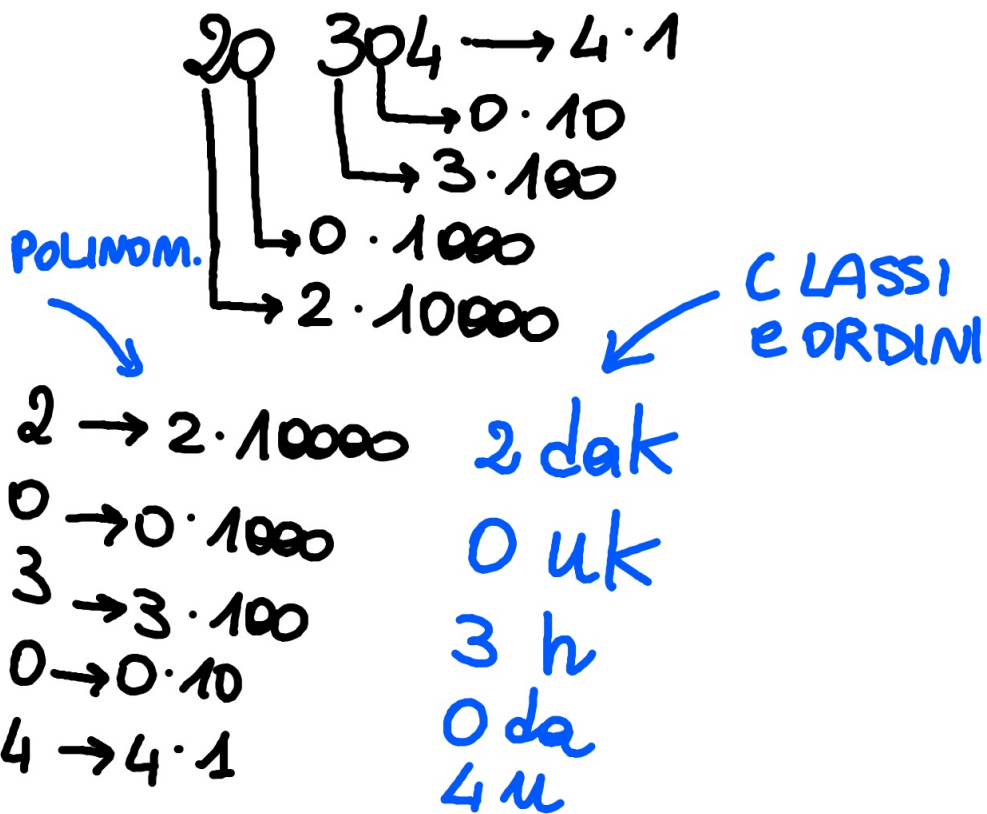 20 304 → 4·1
→ 0·10
→ 3·100
→ 0·1000
→ 2·10000
POLINOM.
CLASSI
e ORDINI
2 → 2·10000
0 → 0·1000
3 → 3·100
0 → 0·10
4 → 4·1
2 dak
0 uk
3 h
0 da
4 u